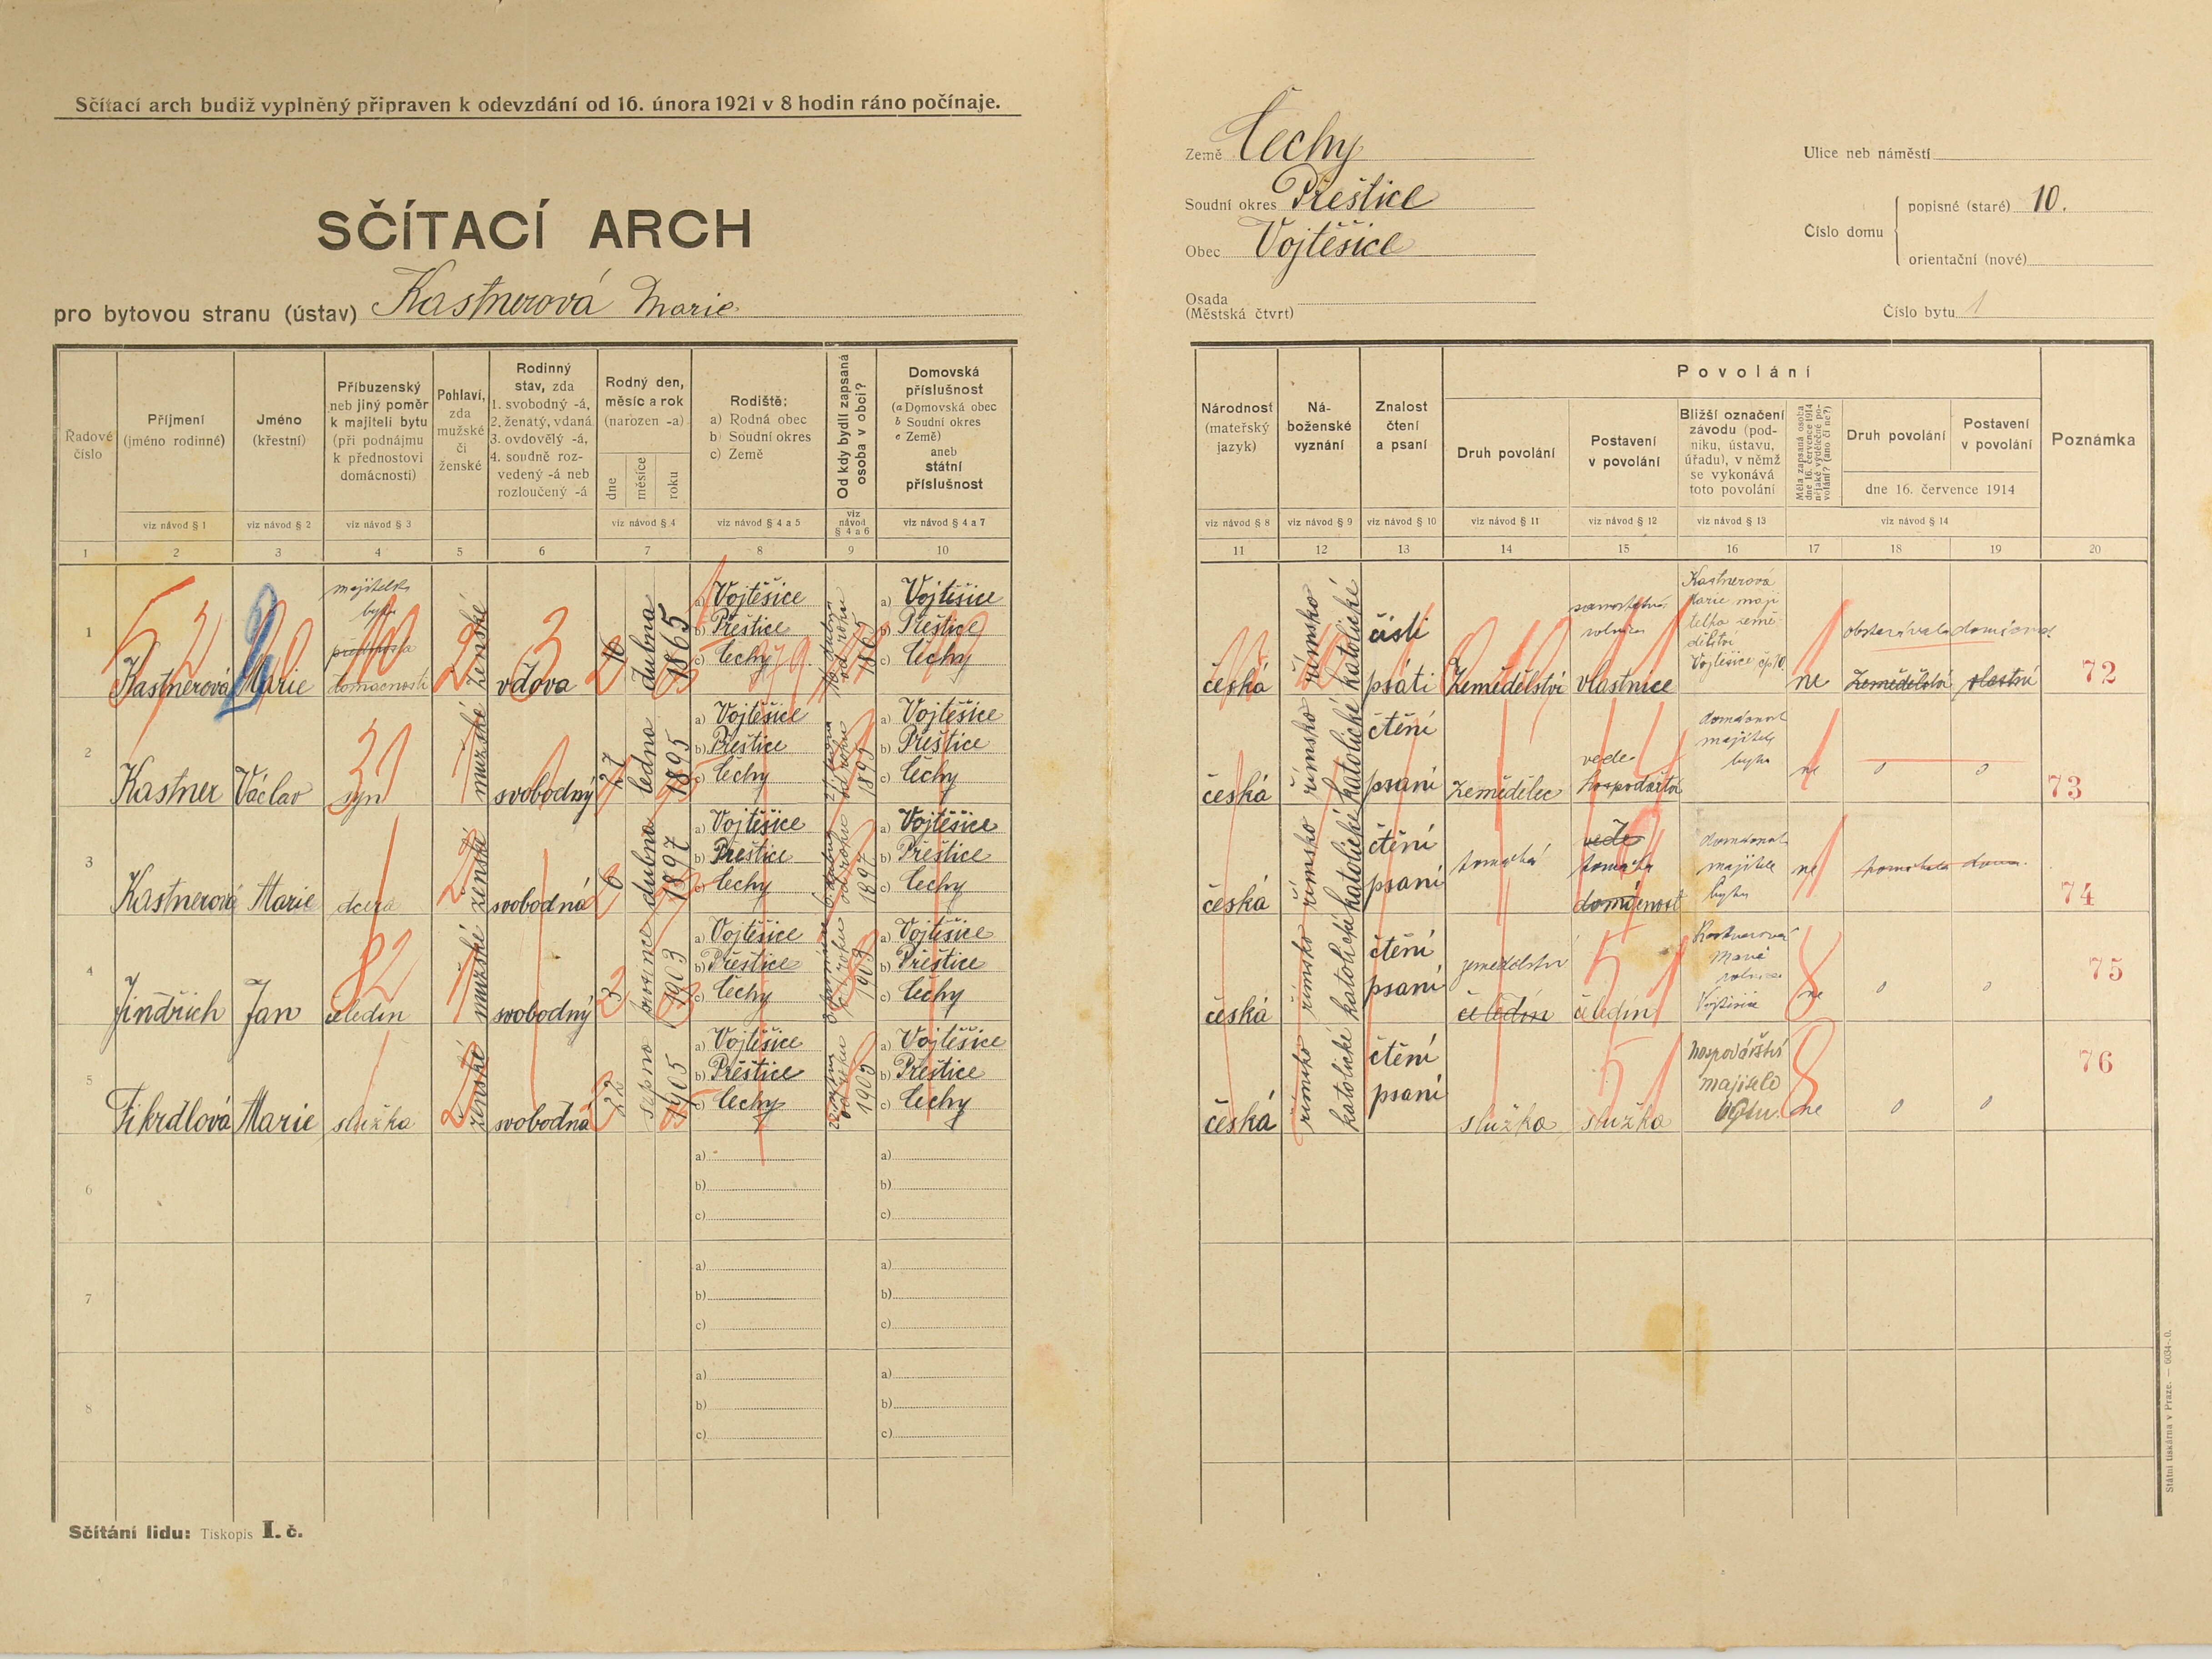 Sčítací arch budiž vyplněný připraven k odevzdání od 16. února 1921 v 8 hodin ráno počínaje.
SČÍTACÍ ARCH
pro bytovou stranu (ústav) Kastnerová Marie
Země Čechy
Soudní okres Přeštice
Obec Vojtěšice
Osada
(Městská čtvrt)
Ulice neb náměstí
Číslo domu
popisné (staré) 10.
orientační (nové)
Číslo bytu 1
Řadové číslo
Příjmení (jméno rodinné)
Jméno (křestní)
Příbuzenský neb jiný poměr k majiteli bytu (při podnájmu k přednostovi domácnosti)
Pohlaví, zda mužské či ženské
Rodinný stav, zda 1. svobodný -á, 2. ženatý, vdaná 3. ovdovělý -á, 4. soudně rozvedený -á neb rozloučený -á
Rodný den, měsíc a rok (narozen -a)
dne měsíce roku
Rodiště: a) Rodná obec b) Soudní okres c) Země
Od kdy bydlí zapsaná osoba v obci?
Domovská příslušnost (a Domovská obec b Soudní okres c Země) aneb státní příslušnost
viz návod § 1 viz návod § 2 viz návod § 3 viz návod § 4 viz návod § 4 a 5 viz návod § 4 a 6 viz návod § 4 a 7
1 2 3 4 5 6 7 8 9 10
Národnost (mateřský jazyk)
Náboženské vyznání
Znalost čtení a psaní
Povolání
Druh povolání
Postavení v povolání
Bližší označení závodu (podniku, ústavu, úřadu), v němž se vykonává toto povolání
Měla zapsaná osoba dne 16. července 1914 nějaké výdělečné povolání? (ano či ne?)
Druh povolání
Postavení v povolání
dne 16. července 1914
Poznámka
viz návod § 8 viz návod § 9 viz návod § 10 viz návod § 11 viz návod § 12 viz návod § 13 viz návod § 14
11 12 13 14 15 16 17 18 19 20
1 Kastnerová Marie domácnosti ženské vdova 10 dubna 1865
a) Vojtěšice
b) Přeštice
c) Čechy
a) Vojtěšice
b) Přeštice
c) Čechy
česká římsko katolické čísti psáti Zemědělství vlastnice
Kastnerová Marie
Vojtěšice čp 10
ne Zemědělství vlastní 72
2 Kastner Václav syn mužské svobodný 27 ledna 1895
a) Vojtěšice
b) Přeštice
c) Čechy
1895
a) Vojtěšice
b) Přeštice
c) Čechy
česká římsko katolické čtění psaní zemědělec vede hospodářství
domácnost majitele bytu
ne 0 0 73
3 Kastnerová Marie dcera ženské svobodná 6 dubna 1897
a) Vojtěšice
b) Přeštice
c) Čechy
6 dubna od roku 1897
a) Vojtěšice
b) Přeštice
c) Čechy
česká římsko katolické čtění psaní vede domácnost
domácnost majitele bytu
ne 74
4 Jindřich Jan čeledín mužské svobodný 3 1903
a) Vojtěšice
b) Přeštice
c) Čechy
od roku 1903
a) Vojtěšice
b) Přeštice
c) Čechy
česká římsko katolické čtění psaní zemědělství čeledín čeledín
Kastnerová Marie
Vojtěšice
ne 0 0 75
5 Fikrdlová Marie služka ženské svobodná 22 srpna 1905
a) Vojtěšice
b) Přeštice
c) Čechy
od roku 1905
a) Vojtěšice
b) Přeštice
c) Čechy
česká římsko katolické čtění psaní služka služka
hospodářství
ne 0 0 76
6
a)
b)
c)
a)
b)
c)
7
a)
b)
c)
a)
b)
c)
8
a)
b)
c)
a)
b)
c)
Sčítání lidu: Tiskopis I. č.
Státní tiskárna v Praze. — 6034-.0.